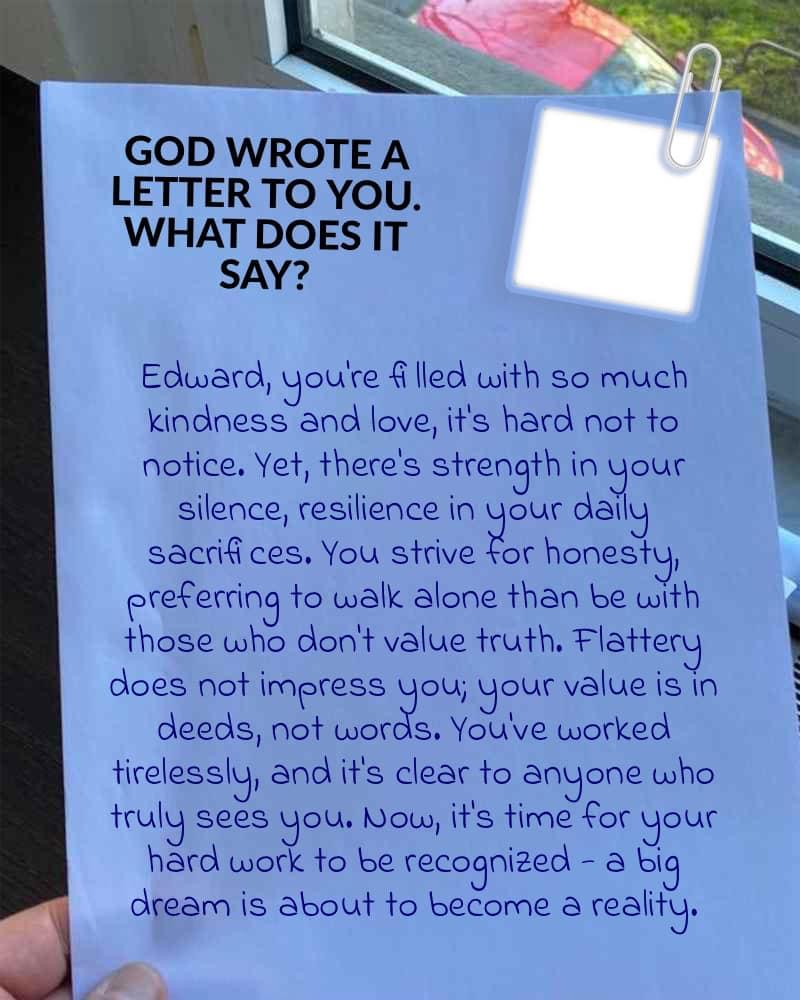 GOD WROTE A
LETTER TO YOU.
WHAT DOES IT
SAY?
Edward, you're filled with so much
kindness and love, it's hard not to
notice. Yet, there's strength in your
silence, resilience in your daily
sacrifices. You strive for honesty,
preferring to walk alone than be with
those who don't value truth. Flattery
does not impress you; your value is in
deeds, not words. You've worked
tirelessly, and it's clear to anyone who
truly sees you. Now, it's time for your
hard work to be recognized - a big
dream is about to become a reality.